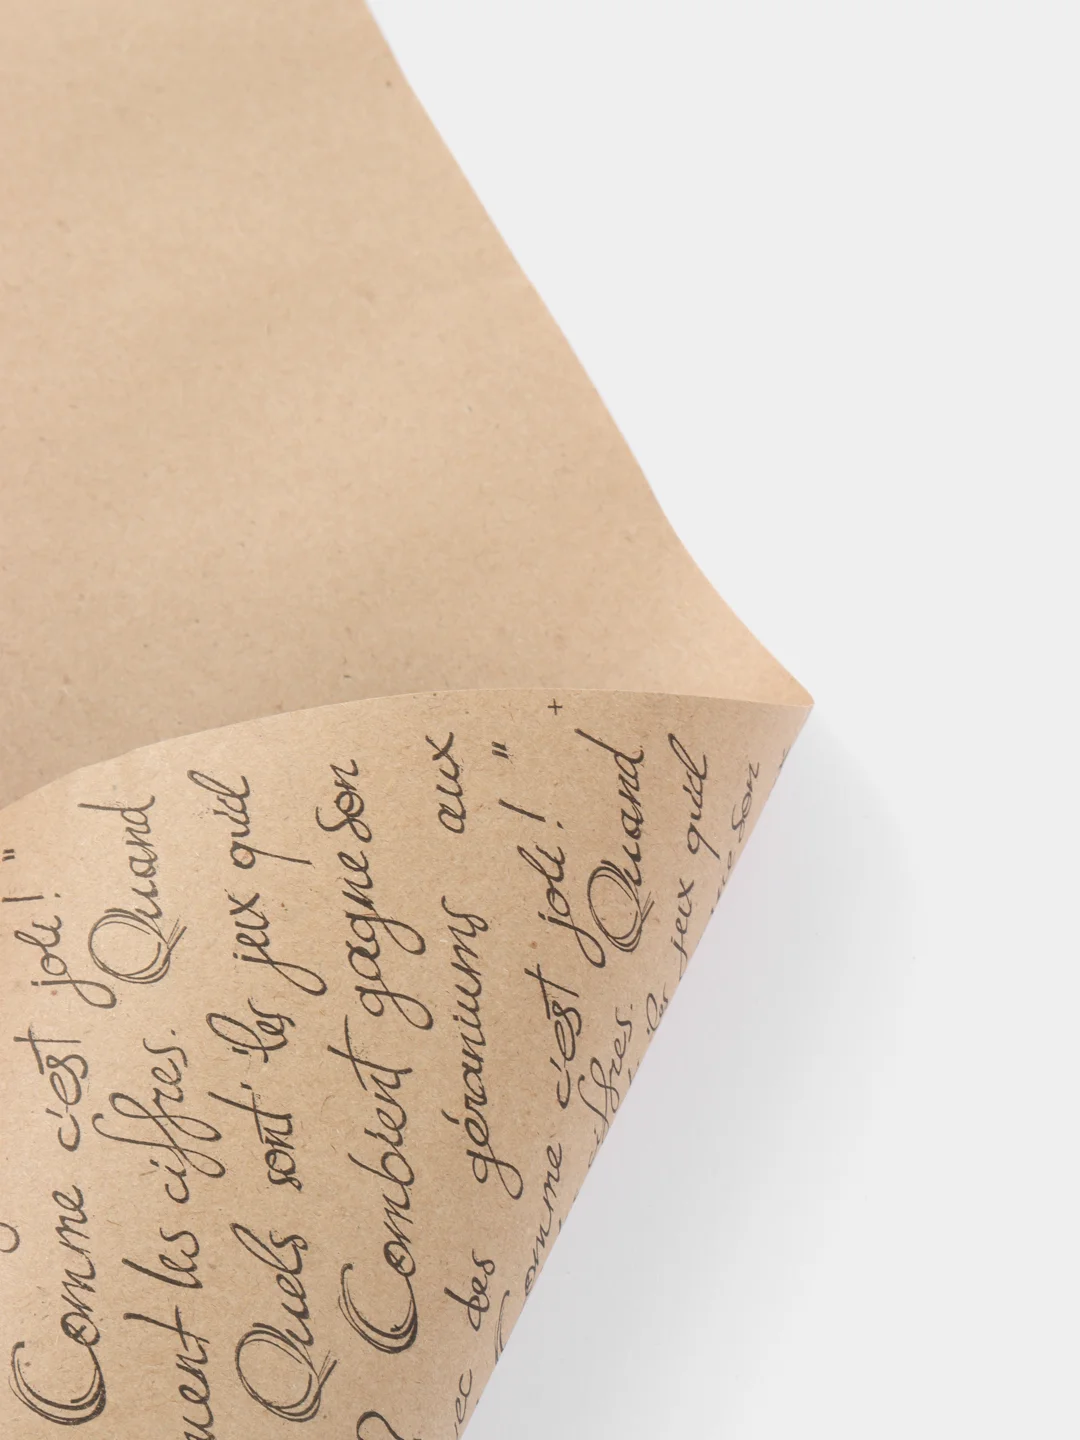 Comme c'est joli ! "
ment les ciffres. Quand
Quels sont les jeux qu'il
? Combient gagne son
vec des géraniums aux
Comme c'est joli ! "
ciffres. Quand
les jeux qu'il
son